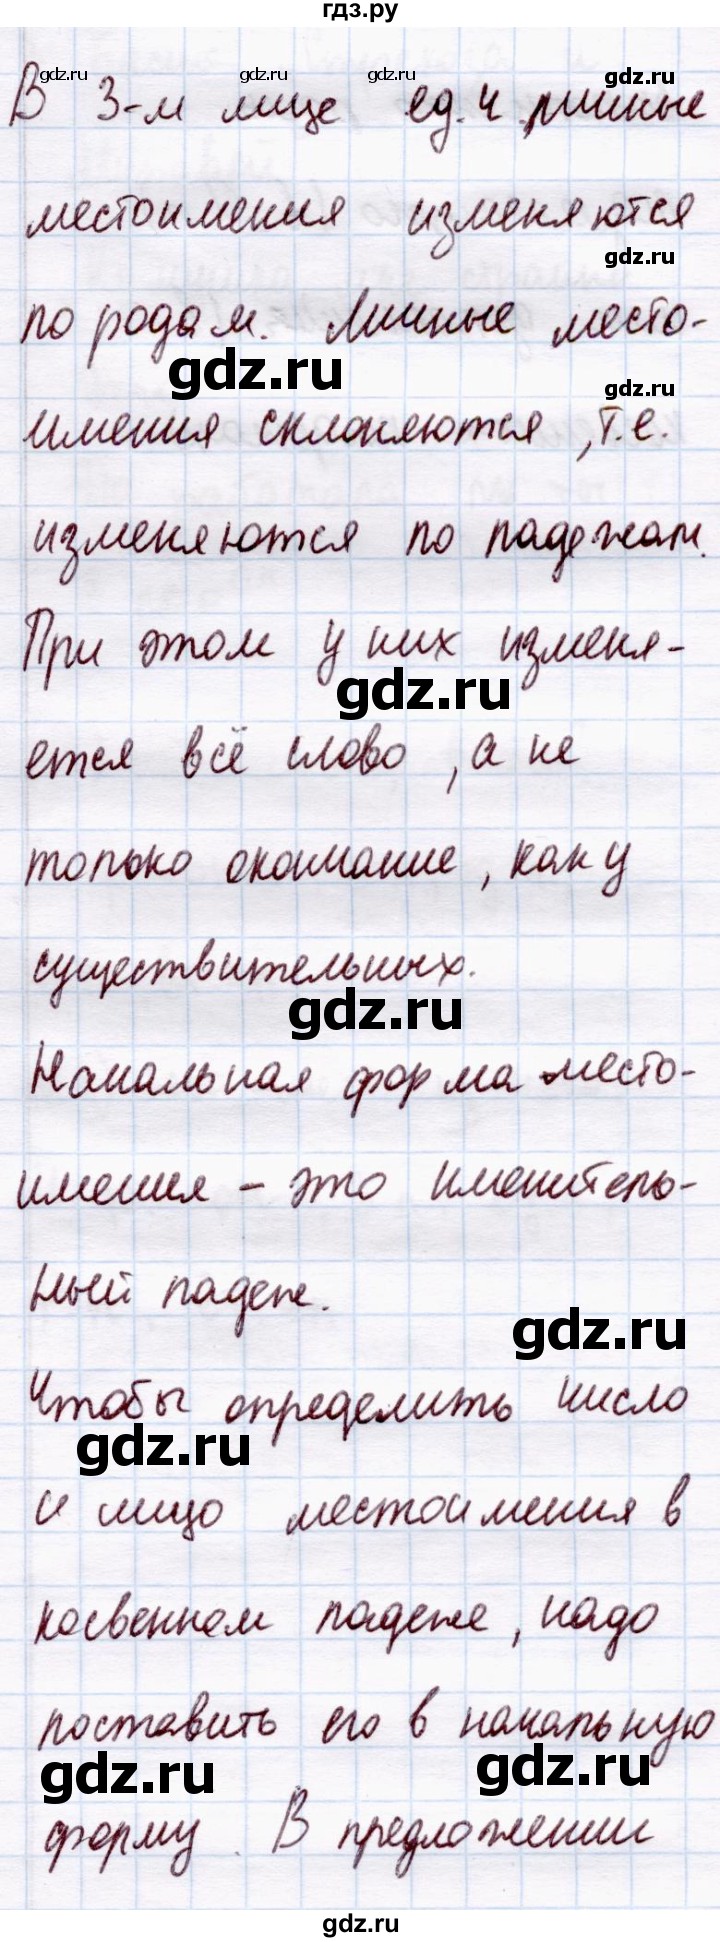 гдз.ру
gdz.ru gdz.ru gdz.ru gdz.ru
В 3-м лице ед.ч. личные
местоимения изменяются
gdz.ru
по родам. Личные место-
gdz.ru
gdz.ru
имения склоняются, т.е.
изменяются по падежам.
При этом у них изменя-
gdz.ru
ется всё слово, а не
только окончание, как у
существительных.
gdz.ru
Начальная форма место-
имения – это именитель-
ный падеж.
gdz.ru
Чтобы определить число
gdz.ru
и лицо местоимения в
косвенном падеже, надо
поставить его в начальную
gdz.ru
gdz.ru
форму. В предложении
gdz.ru